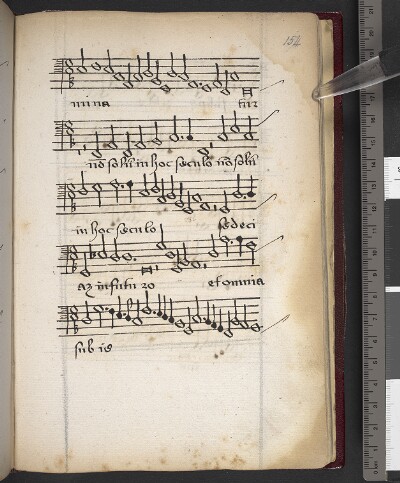 152
mina tur
nō solū in hoc seculo nō solū
in hoc seculo sed eci
az in futu ro et omnia
sub ie